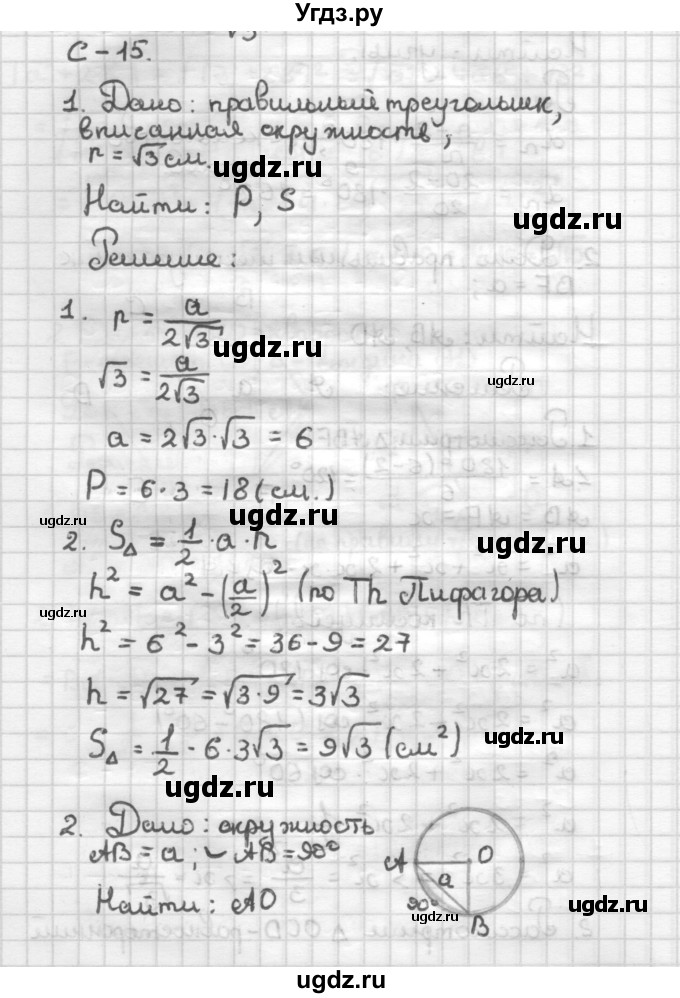 Угдз.ру
С-15.
1. Дано: правильный треугольник,
вписанная окружность,
r = √3 см.
ugdz.ru
Найти: P, S
ugdz.ru
Решение:
1. r = a/(2√3)
ugdz.ru
√3 = a/(2√3)
ugdz.ru
a = 2√3·√3 = 6
P = 6·3 = 18 (см.)
ugdz.ru
2. S△ = 1/2 · a · h
ugdz.ru
h² = a² - (a/2)² (по Th Пифагора)
ugdz.ru
h² = 6² - 3² = 36 - 9 = 27
h = √27 = √(3·9) = 3√3
ugdz.ru
S△ = 1/2 · 6 · 3√3 = 9√3 (см²)
ugdz.ru
2. Дано: окружность
AB = a; ◡ AB = 90°
A O
a
Найти: AO
90°
ugdz.ru
B
ugdz.ru
ugdz.ru